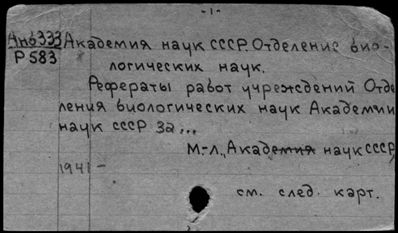 -1-
Анб333 Академия наук СССР. Отделение био-
Р583 логических наук.
Рефераты работ учреждений Отде
ления биологических наук Академии
наук СССР за...
М.-Л., Академия наук СССР,
1941-
см. след. карт.